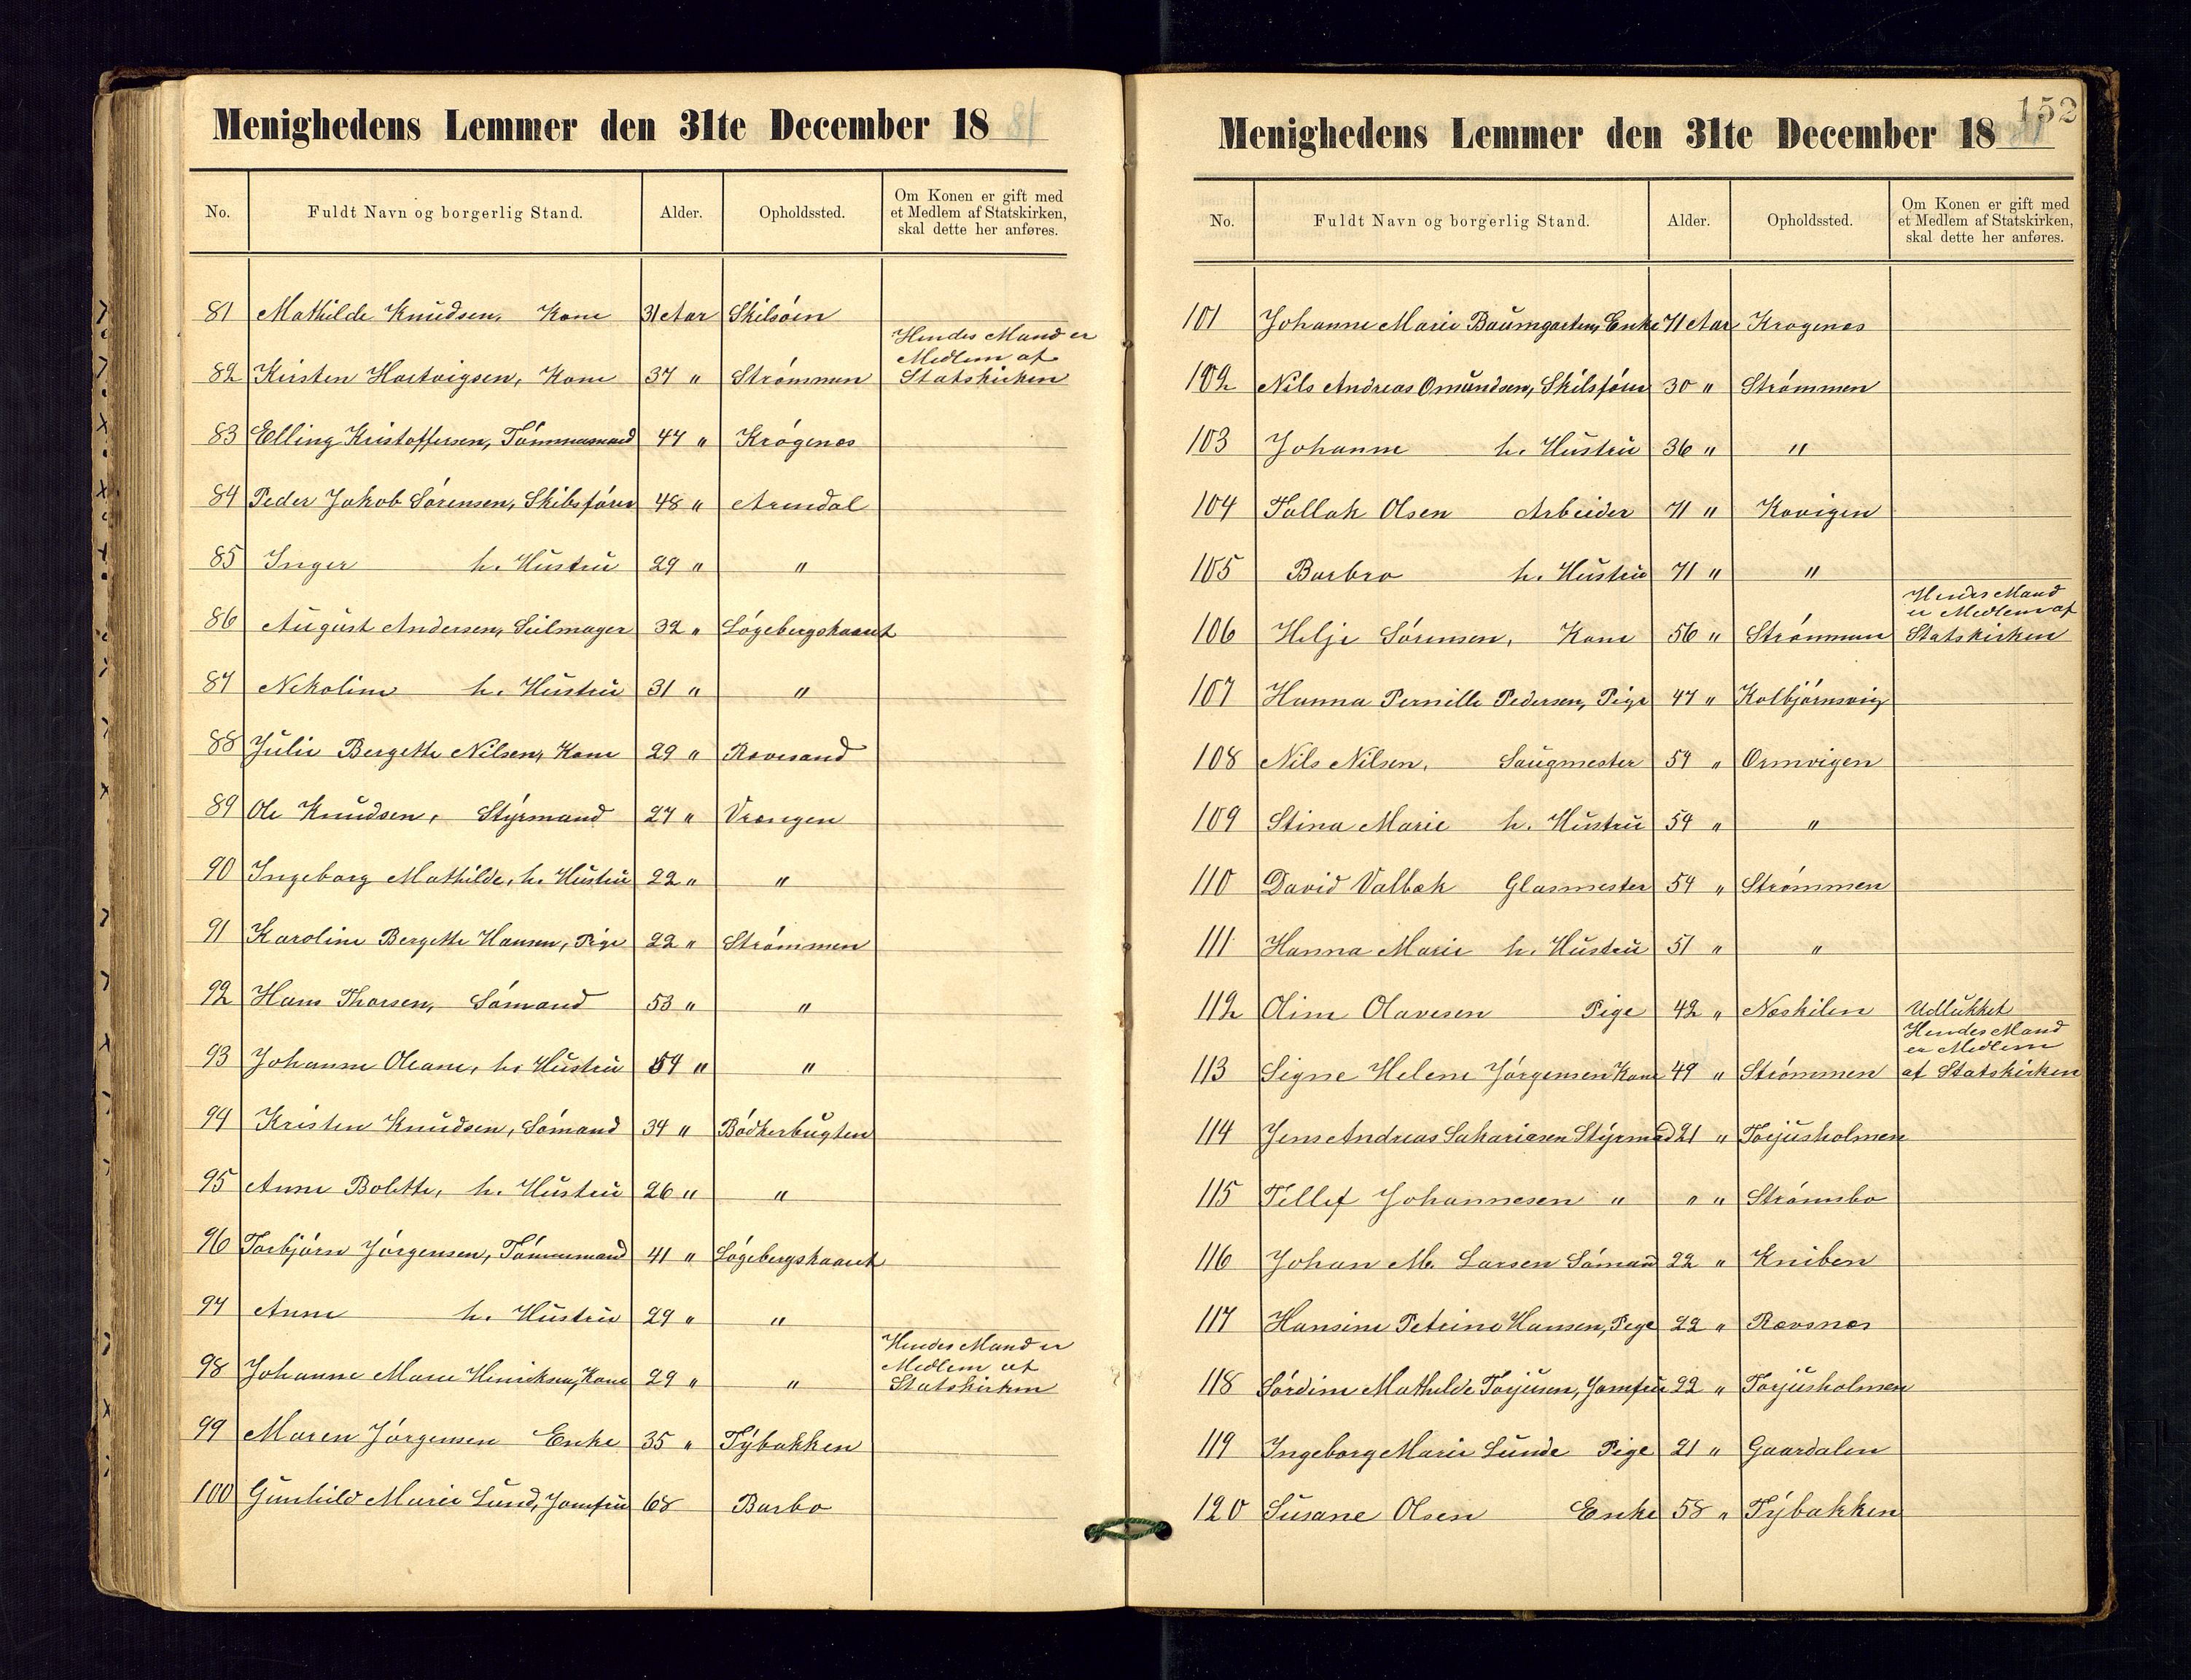 Menighedens Lemmer den 31te December 1881
No. Fuldt Navn og borgerlig Stand. Alder. Opholdssted. Om Konen er gift med
et Medlem af Statskirken,
skal dette her anføres.
81 Mathilde Knudsen, Kone 31 Aar Skilsøin
Hendes Mand er
Medlem af
82 Kirsten Hartvigsen, Kone 37 " Strømmen Statskirken
83 Elling Kristoffersen, Tømmermand 47 " Krøgenes
84 Peder Jakob Sørensen, Skibsfører 48 " Arendal
85 Inger h. Hustru 29 " "
86 August Andersen, Seilmager 32 " Løgebergskaaret
87 Nikoline h. Hustru 31 " "
88 Julie Bergette Nilsen, Kone 29 " Ravesand
89 Ole Knudsen, Styrmand 27 " Vrængen
90 Ingeborg Mathilde, h. Hustru 22 " "
91 Karoline Bergette Hansen, Pige 22 " Strømmen
92 Hans Thorsen, Sømand 53 " "
93 Johanne Oleane, h. Hustru 54 " "
94 Kristen Knudsen, Sømand 34 " Bødkerbugten
95 Anne Bolette, h. Hustru 26 " "
96 Torbjørn Jørgensen, Tømmermand 41 " Løgebergskaaret
97 Anne h. Hustru 29 " "
Hendes Mand er
Medlem af
98 Johanne Marie Henriksen, Kone 29 " " Statskirken
99 Maren Jørgensen Enke 35 " Tybakken
100 Gunhild Marie Lund, Jomfru 68 Barbo
152
Menighedens Lemmer den 31te December 1881
No. Fuldt Navn og borgerlig Stand. Alder. Opholdssted. Om Konen er gift med
et Medlem af Statskirken,
skal dette her anføres.
101 Johanne Marie Baumgarten, Enke 71 Aar Krogenes
102 Nils Andreas Omundsen, Skibsfører 30 " Strømmen
103 Johanne h. Hustru 36 " "
104 Tallak Olsen Arbeider 71 " Kovigen
105 Barbro h. Hustru 71 " "
Hendes Mand
er Medlem af
106 Helje Sørensen, Kone 56 " Strømmen Statskirken
107 Hanna Pernille Pedersen, Pige 47 " Kolbjørnsvig
108 Nils Nilsen, Saugmester 54 " Ormvigen
109 Stina Marie h. Hustru 54 " "
110 David Valbæk Glasmester 54 " Strømmen
111 Hanna Marie h. Hustru 51 " "
112 Oline Olavesen Pige 42 " Neskilen Udlukket
Hendes Mand
er Medlem
113 Signe Helene Jørgensen Kone 49 " Strømmen af Statskirken
114 Jens Andreas Sakariasen Styrmad 21 " Torjusholmen
115 Tellef Johannesen " " " Strømsbo
116 Johan M. Larsen Sømand 22 " Kniben
117 Hansine Petrine Hansen, Pige 22 " Rævsnes
118 Sørdine Mathilde Torjusen, Jomfru 22 " Torjusholmen
119 Ingeborg Marie Lunde Pige 21 " Gaardalen
120 Susane Olsen Enke 58 " Tybakken